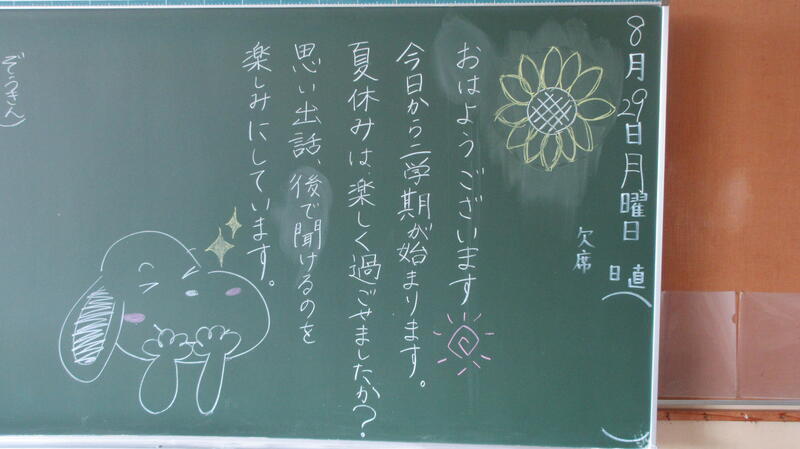 8月29日月曜日
日直
欠席
おはようございます
今日から二学期が始まります。
夏休みは、楽しく過ごせましたか?
思い出話、後で聞けるのを
楽しみにしています。
ぞうきん)